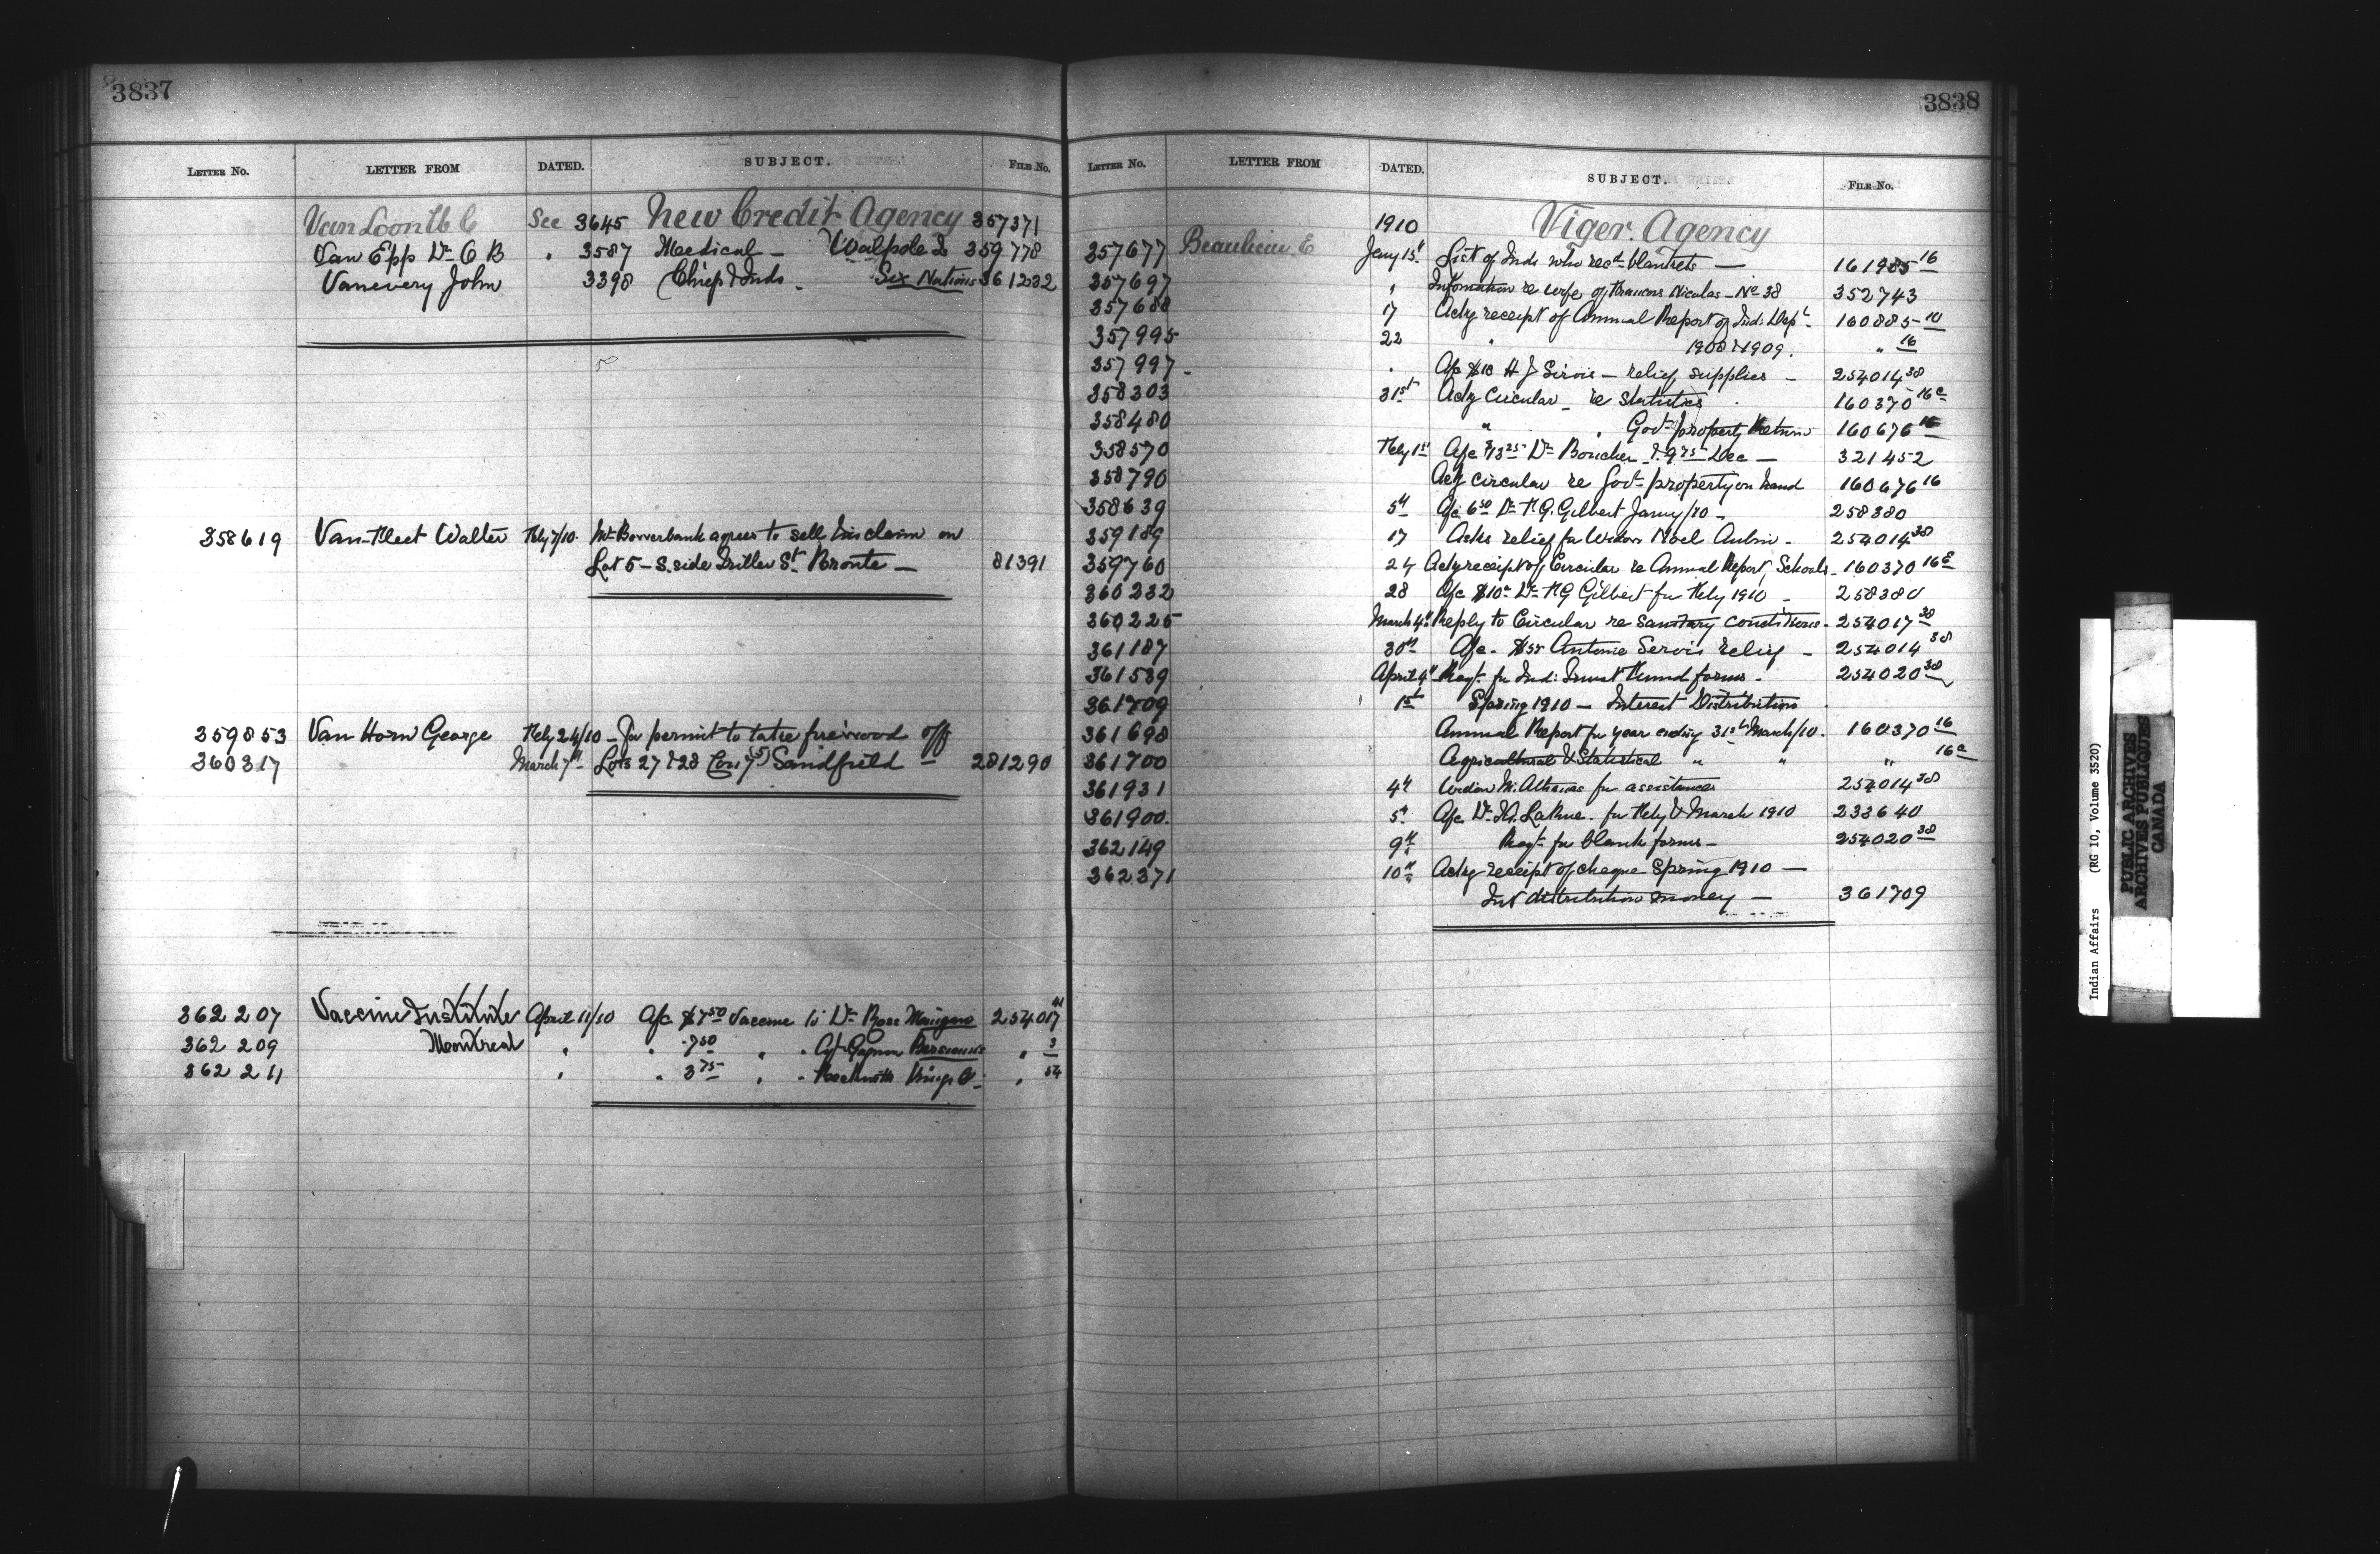 3837
LETTER No. LETTER FROM DATED. SUBJECT. FILE No.
Van Loon W C See 3645 New Credit Agency 357371
Van Epp Dr C B " 3587 Medical — Walpole Is 359778
Vanevery John 3398 Chief & Inds. Six Nations 361232
358619 Van-Fleet Walter Feby 7/10. Mr Bowerbank agrees to sell his claim on
Lot 5 — S. side Triller St. Bronte — 81391
359853 Van Horn George Feby 24/10 — for permit to take firewood off
360317 March 7th — Lots 27 & 28 Con 7 (5) Sandfield — 281290
362207 Vaccine Institute April 11/10 A/c $7.50 Vaccine to Dr Rose 254017 41
362209 Montreal " " 7.50 " " Agt Gagnon Bersimis " 3
362211 " " 3.75 " " Beckwith Kings Co. " 54
3838
LETTER No. LETTER FROM DATED. SUBJECT. FILE No.
1910 Viger Agency
357677 Beaulieu E Jany 15th List of Inds who recd blankets — 161985 16
357697 " Information re wife of Francois Nicolas — No 38 352743
357688 17 Ackg receipt of Annual Report of Ind: Dept. 160885-10
357995 22 " 1908 & 1909. " 16
357997 " A/c $18 H J Sirois — relief supplies — 254014 38
358303 31st Ackg Circular — re Statistics 160370 16c
358480 " " Govt property Return 160676 16
358570 Feby 1st A/c $13.25 Dr Boucher & 9.75 Dec — 321452
358790 Ackg circular re Govt property on hand 160676 16
358639 5th A/c 6.50 Dr P. G. Gilbert Jany/10 — 258380
359189 17 Asks relief for Widow Noel Aubin — 254014 38
359760 24 Ackg receipt of Circular re Annual Report, Schools — 160370 16c
360232 28 A/c $10.- Dr P G Gilbert for Feby 1910 — 258380
360225 March 4th Reply to Circular re sanitary conditions — 254017 38
361187 30th A/c — Antonie Servis relief — 254014 38
361539 April 4th Reqt. for Ind: Trust Fund forms — 254020 38
361709 1st Spring 1910 — Interest Distribution
361698 Annual Report for year ending 31st March/10. 160370 16
361700 Agricultural & Statistical " " " 16a
361931 4th Widow M. Athanas for assistance 254014 38
361900. 5th A/c Dr LaRue. for Feby & March 1910 233640
362149 9th Reqt. for blank forms — 254020 38
362371 10th Ackg receipt of cheque Spring 1910 —
Int distribution money — 361709
Indian Affairs (RG 10, Volume 3520)
PUBLIC ARCHIVES
ARCHIVES PUBLIQUES
CANADA